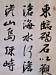 東臨碣石以觀
滄海水何澹
澹山島竦峙